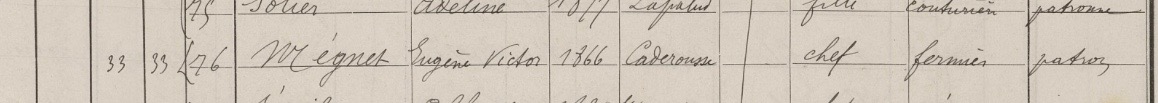 75 Soller Adeline 1877 Lapalud fille couturière patronne
33 33 76 Mégnet Eugène Victor 1866 Caderousse chef fermier patron